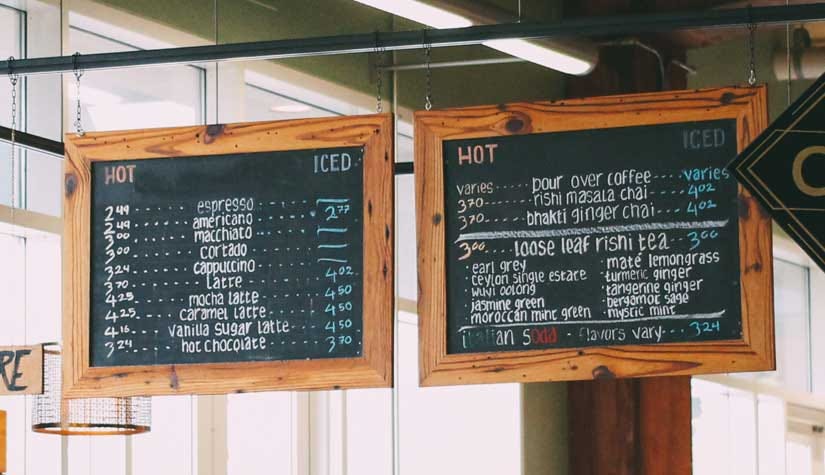 HOT ICED
2.49 ..... espresso ..... —
2.49 ..... americano ..... 2.77
3.00 ..... macchiato ..... —
3.00 ..... cortado ..... —
3.24 ..... cappuccino ..... —
3.70 ..... latte ..... 4.02
4.25 ..... mocha latte ..... 4.50
4.25 ..... caramel latte ..... 4.50
4.16 ..... vanilla sugar latte ..... 4.50
3.24 ..... hot chocolate ..... 3.70
HOT ICED
varies ..... pour over coffee ..... varies
3.70 ..... rishi masala chai ..... 4.02
3.70 ..... bhakti ginger chai ..... 4.02
3.00 ... loose leaf rishi tea ... 3.00
· earl grey
· ceylon single estate
· wuyi oolong
· jasmine green
· moroccan mint green
· maté lemongrass
· turmeric ginger
· tangerine ginger
· bergamot sage
· mystic mint
italian soda - flavors vary ..... 3.24
RE